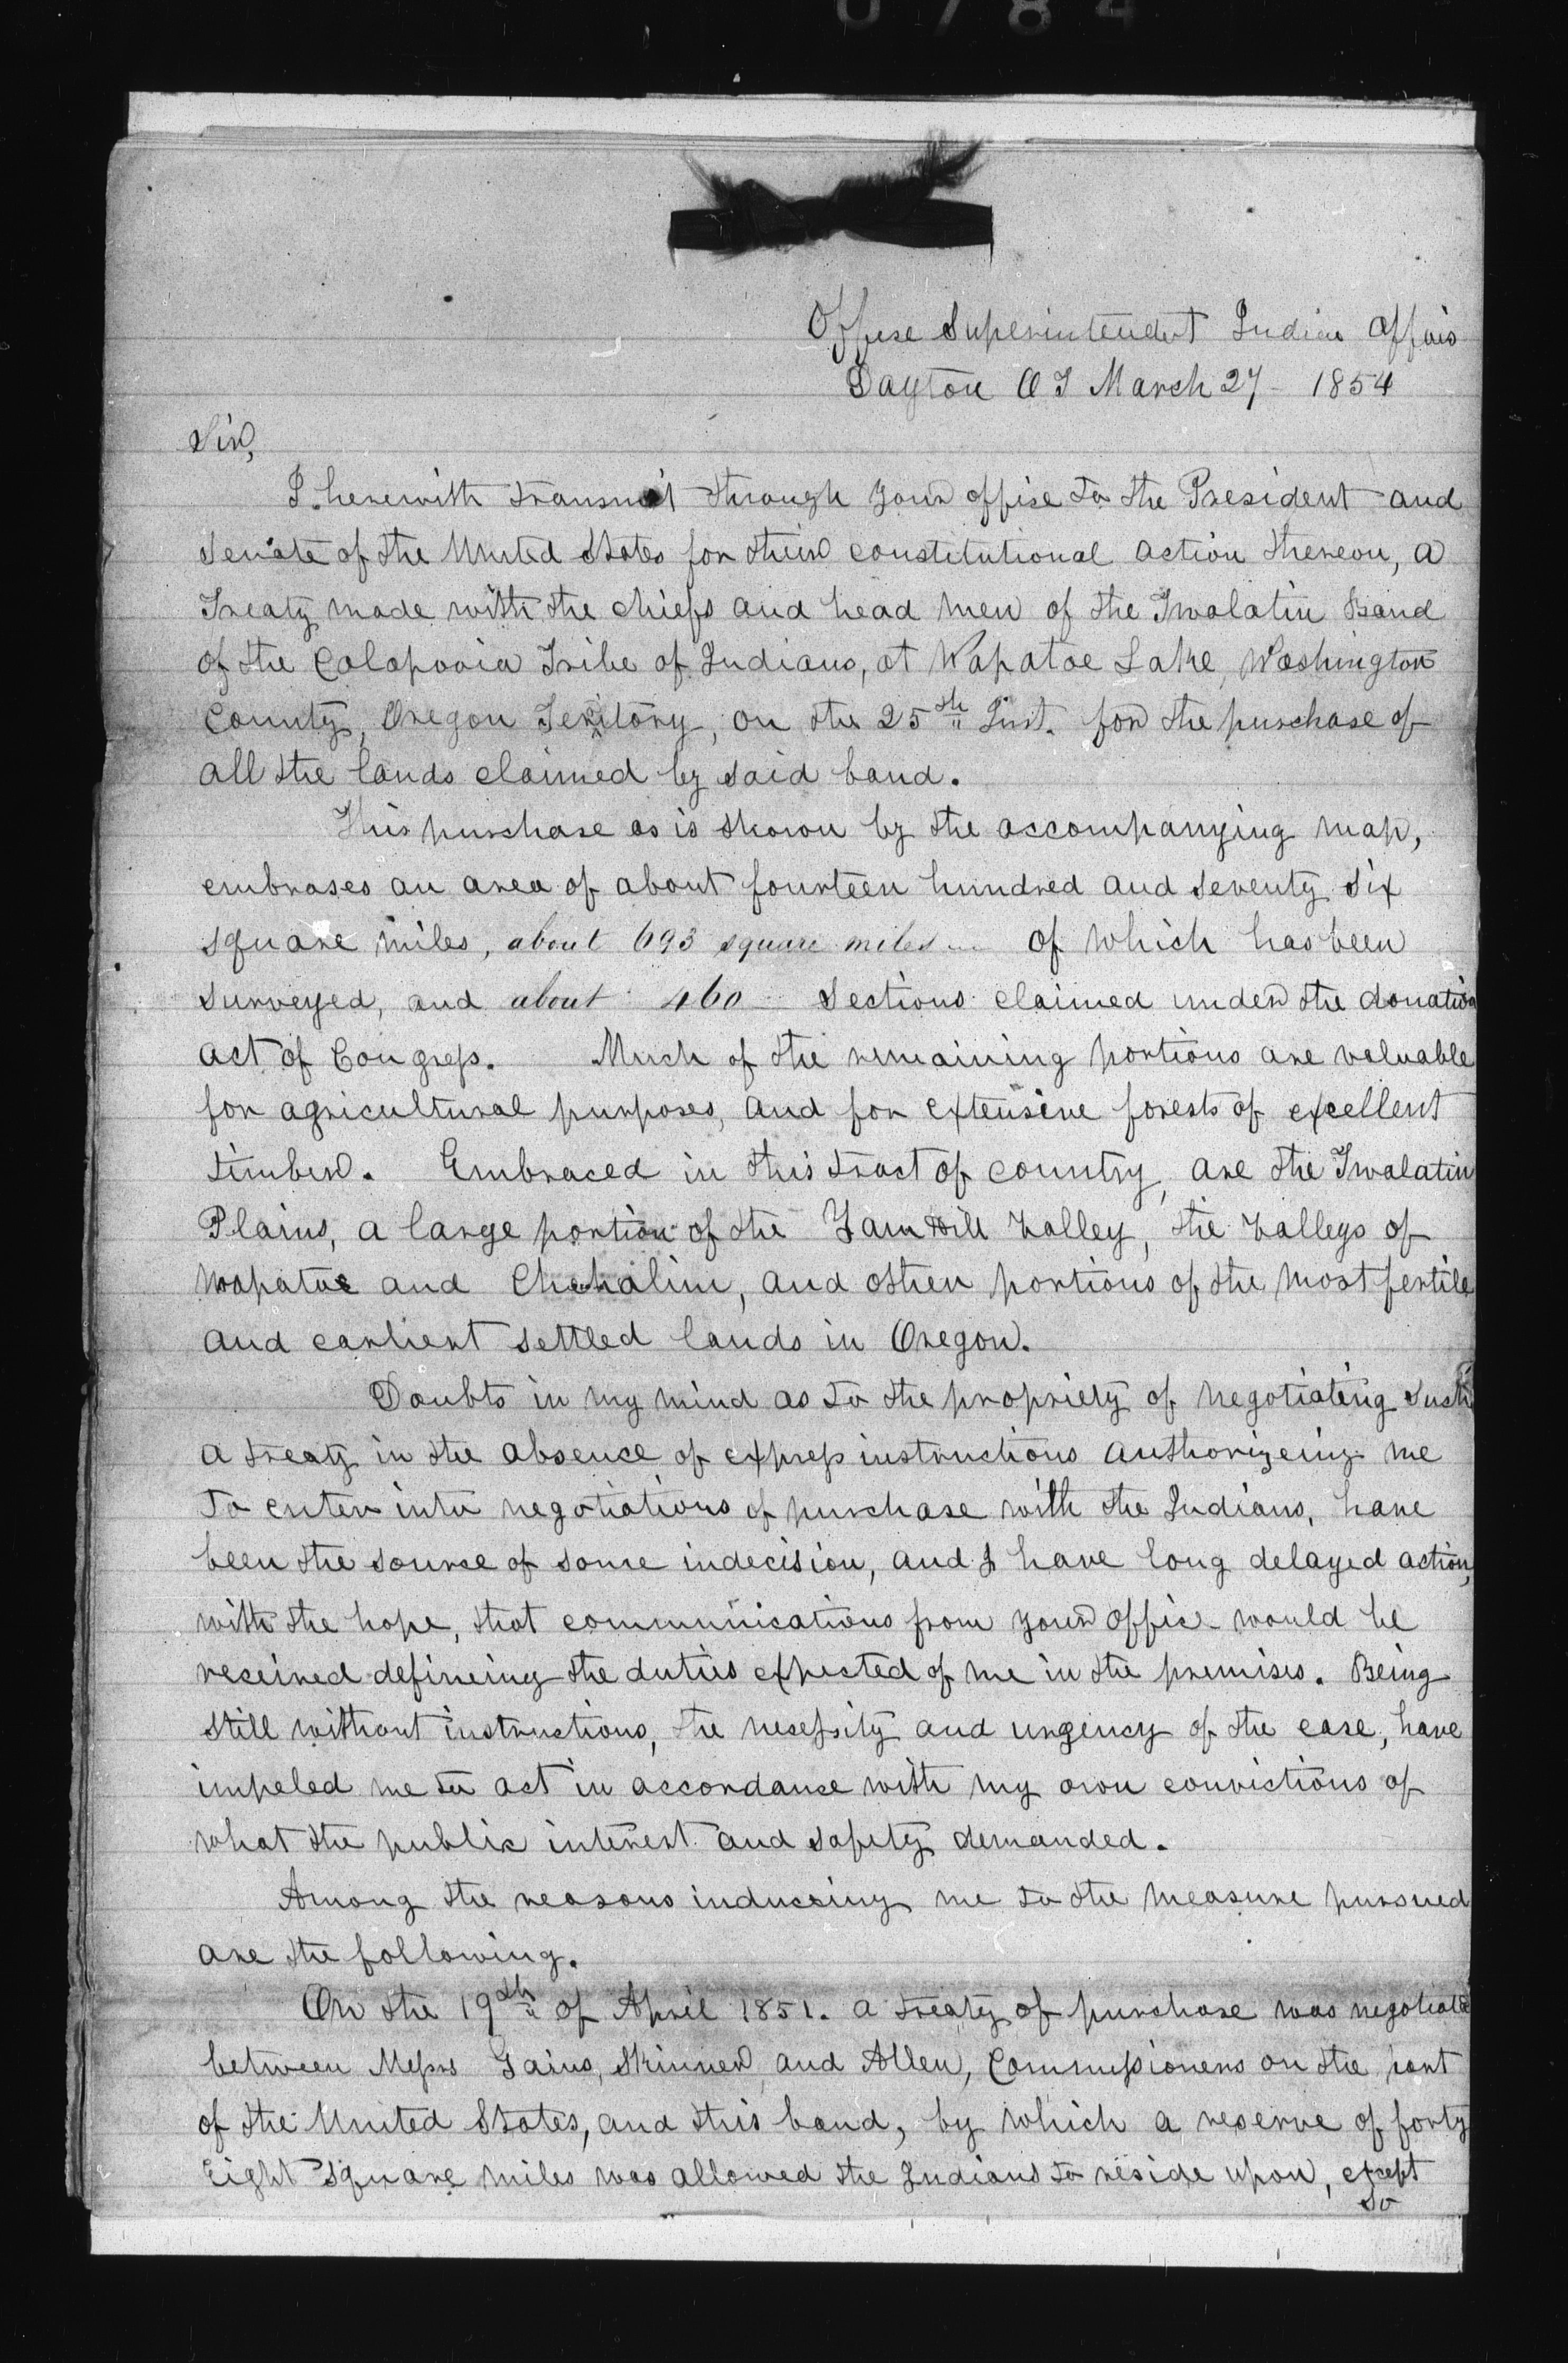 0784
Offise Superintendent Indian Affairs
Dayton O T March 27 - 1854
Sir,
I herewith transmit through your offise to the President and
Senate of the United States for their constitutional action thereon, a
Treaty made with the chiefs and head men of the Twalatin Band
of the Calapooia Tribe of Indians, at Wapatoe Lake, Washington
County, Oregon Territory, on the 25th Inst. for the purchase of
all the lands claimed by said band.
This purchase as is shown by the accompanying map,
embrases an area of about fourteen hundred and seventy six
square miles, about 693 square miles of which has been
surveyed, and about 460 sections claimed under the donation
act of Congress. Much of the remaining portions are valuable
for agricultural purposes, and for extensive forests of excellent
timber. Embraced in this tract of country, are the Twalatin
Plains, a large portion of the Yam Hill Valley, the Valleys of
Wapatoe and Chehalim, and other portions of the most fertile
and earliest settled lands in Oregon.
Doubts in my mind as to the propriety of negotiating such
a treaty in the absence of express instructions authorizeing me
to enter into negotiations of purchase with the Indians, have
been the sourse of some indecision, and I have long delayed action,
with the hope, that communications from your offise would be
received defineing the duties expected of me in the premises. Being
still without instructions, the nesessity and urgency of the case, have
impeled me to act in accordanse with my own convictions of
what the public interest and safety demanded.
Among the reasons induceing me to the measure pursued
are the following.
On the 19th of April 1851. a treaty of purchase was negotiated
between Messrs Gains, Skinner and Allen, Commissioners on the part
of the United States, and this band, by which a reserve of forty
eight square miles was allowed the Indians to reside upon, except
so